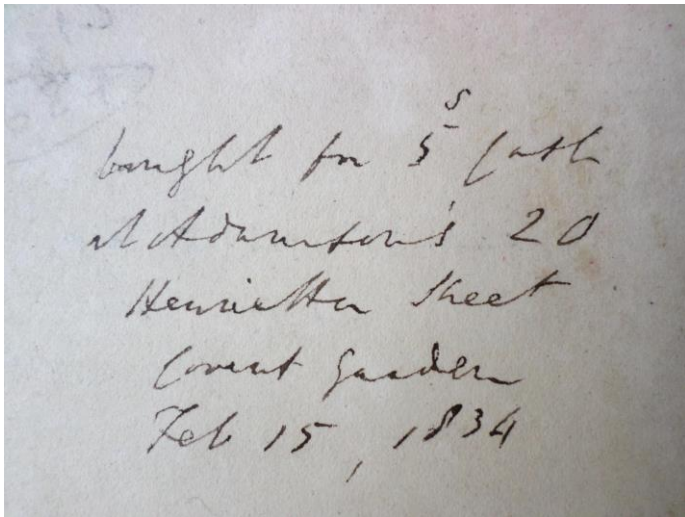 bought for 5s cash
at Adamson's 20
Henrietta Street
Covent Garden
Feb 15, 1834